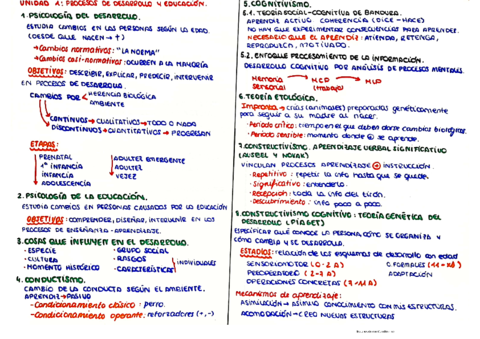 UNIDAD 1: PROCESOS DE DESARROLLO Y EDUCACIÓN.
1. PSICOLOGÍA DEL DESARROLLO.
ESTUDIA CAMBIOS EN LAS PERSONAS SEGÚN LA EDAD.
(DESDE QUE NACEN → †)
→ Cambios normativos: "LA NORMA"
→ Cambios casi-normativos: OCURREN A LA MAYORÍA
OBJETIVOS: DESCRIBIR, EXPLICAR, PREDECIR, INTERVENIR
EN PROCESOS DE DESARROLLO
CAMBIOS POR HERENCIA BIOLÓGICA
AMBIENTE
CONTINUOS → CUALITATIVOS → TODO O NADA
DISCONTINUOS → CUANTITATIVOS → PROGRESAN
ETAPAS:
PRENATAL
1ª INFANCIA
INFANCIA
ADOLESCENCIA
ADULTEZ EMERGENTE
ADULTEZ
VEJEZ
2. PSICOLOGÍA DE LA EDUCACIÓN.
ESTUDIA CAMBIOS EN PERSONAS CAUSADOS POR LA EDUCACIÓN
OBJETIVOS: COMPRENDER, DISEÑAR, INTERVENIR EN LOS
PROCESOS DE ENSEÑANZA - APRENDIZAJE.
3. COSAS QUE INFLUYEN EN EL DESARROLLO.
• ESPECIE
• CULTURA
• MOMENTO HISTÓRICO
• GRUPO SOCIAL
• RASGOS
• CARACTERÍSTICAS
INDIVIDUALES
4. CONDUCTISMO.
CAMBIO DE LA CONDUCTA SEGÚN EL AMBIENTE.
APRENDIZ → PASIVO
- Condicionamiento clásico: perro.
- Condicionamiento operante: reforzadores (+,-)
5. COGNITIVISMO.
5.1. TEORÍA SOCIAL-COGNITIVA DE BANDURA.
APRENDIZ ACTIVO COHERENCIA (DICE - HACE)
NO HAY QUE EXPERIMENTAR CONSECUENCIAS PARA APRENDER.
NECESARIO QUE EL APRENDIZ: ATIENDA, RETENGA,
REPRODUZCA, MOTIVADO.
5.2. ENFOQUE PROCESAMIENTO DE LA INFORMACIÓN.
DESARROLLO COGNITIVO POR ANÁLISIS DE PROCESOS MENTALES.
Memoria sensorial → MCP (trabajo) → MLP
6. TEORÍA ETOLÓGICA.
Impronta → crías (animales) preparadas genéticamente
para seguir a su madre al nacer.
• Período crítico: tiempo en el que deben darse cambios biológicos.
• Período sensible: momento donde se aprende.
7. CONSTRUCTIVISMO. APRENDIZAJE VERBAL SIGNIFICATIVO
(AUSBEL Y NOVAK)
VINCULAN PROCESOS APRENDIZAJE + INSTRUCCIÓN
• Repetitivo: repetir la info hasta que se quede.
• Significativo: entenderlo.
• Recepción: toda la info del tirón.
• Descubrimiento: info poco a poco.
8. CONSTRUCTIVISMO COGNITIVO: TEORÍA GENÉTICA DEL
DESARROLLO (PIAGET)
ESPECIFICAR QUÉ CONOCE LA PERSONA, CÓMO SE ORGANIZA Y
CÓMO CAMBIA Y SE DESARROLLA.
ESTADIOS: RELACIÓN DE LOS ESQUEMAS DE DESARROLLO CON EDAD
SENSORIOMOTOR (0-2 A)
PREOPERATORIO (2-7 A)
OPERACIONES CONCRETAS (7-11 A)
O. FORMALES (11-15 A)
ADAPTACIÓN
Mecanismos de aprendizaje:
ASIMILACIÓN → ASIMILO CONOCIMIENTO CON MIS ESTRUCTURAS.
ACOMODACIÓN → CREO NUEVAS ESTRUCTURAS